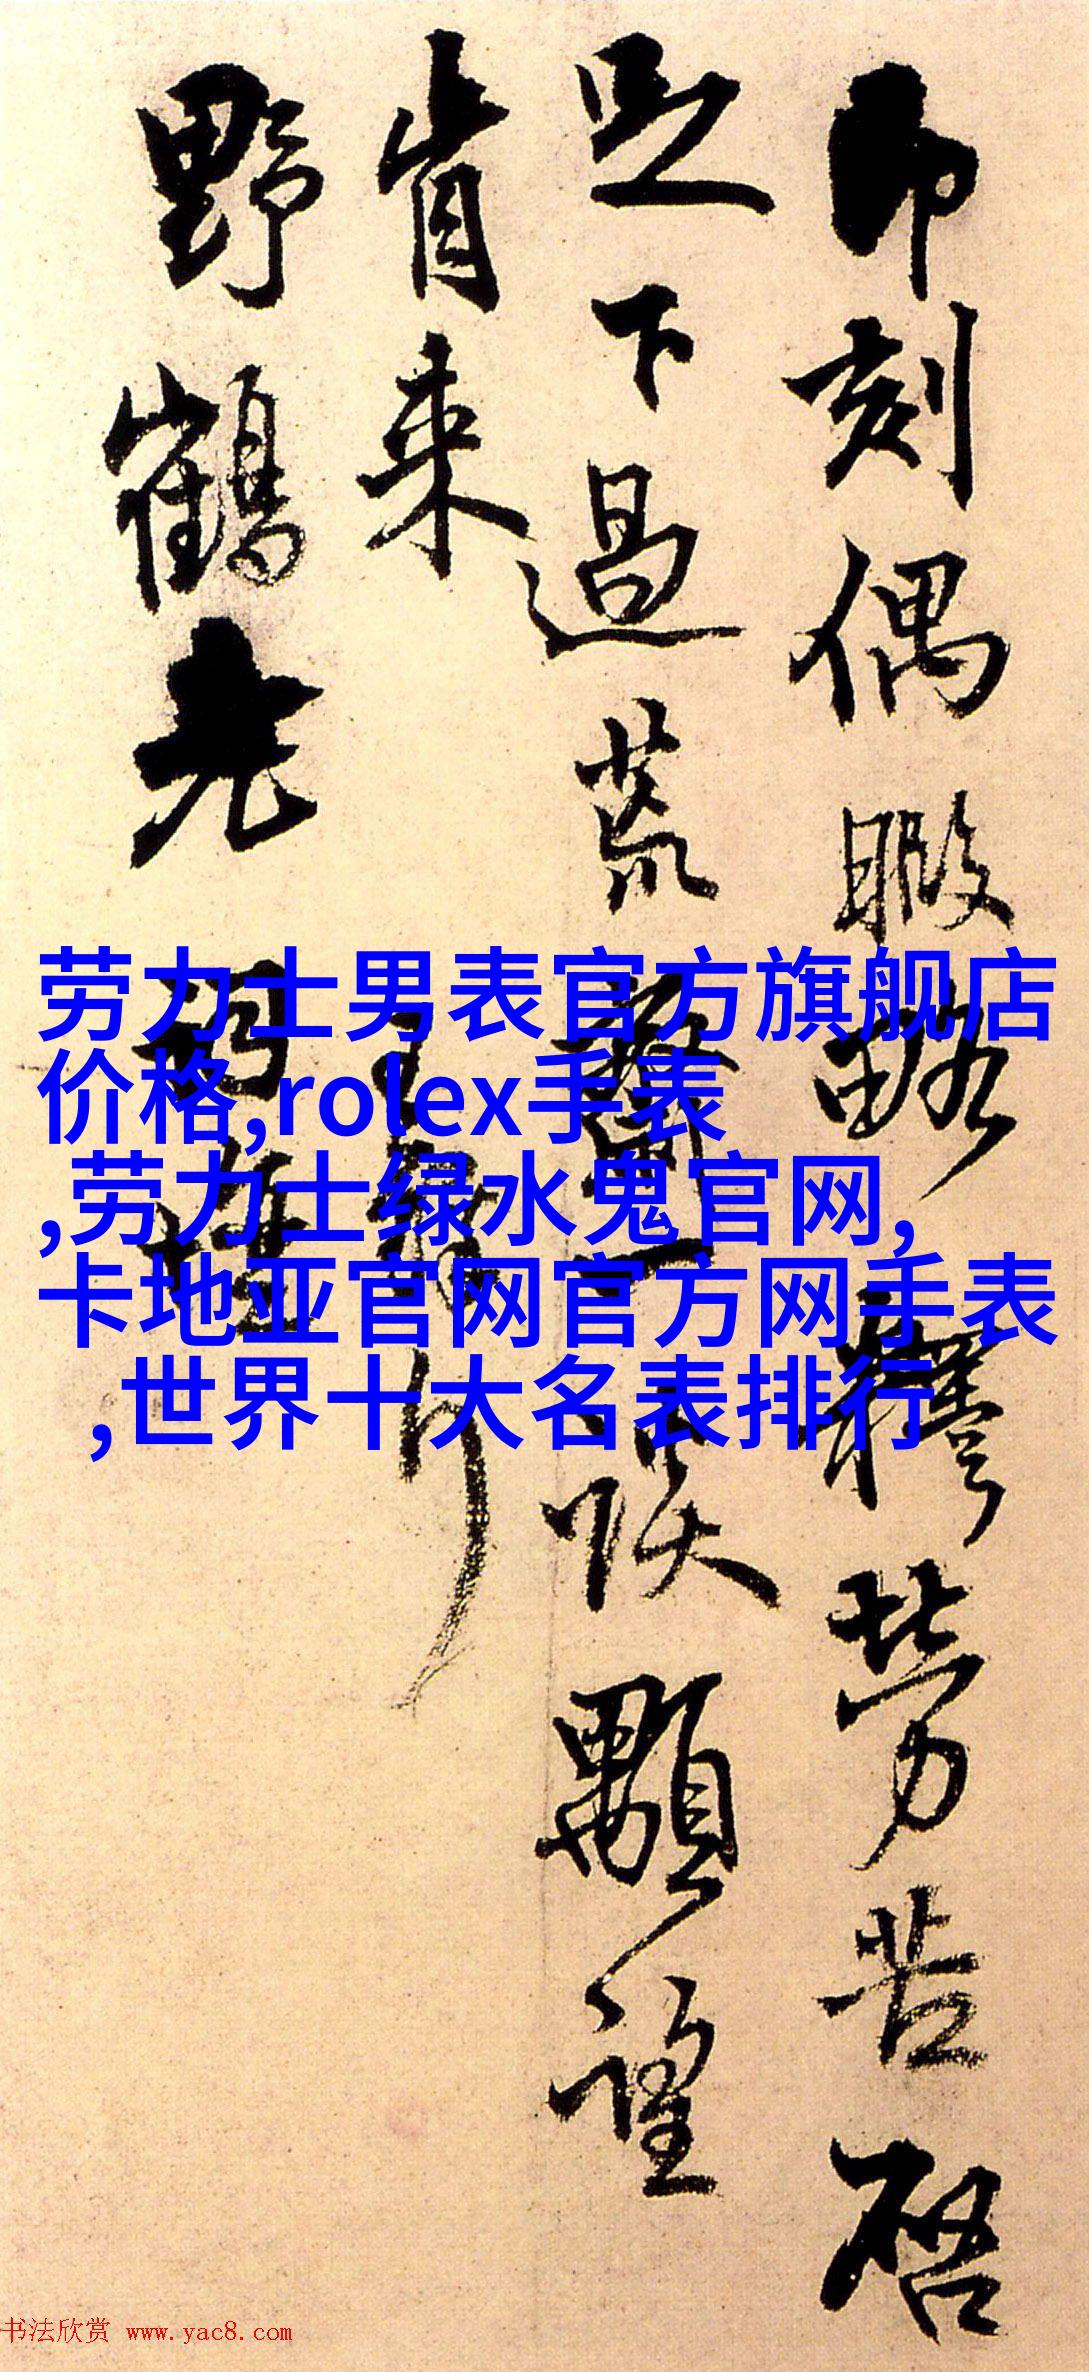 即刻偶暇略釋勞苦啓
足下過荒
談顒望
肯来
野鶴老
劳力士男表官方旗舰店
价格,rolex手表
,劳力士绿水鬼官网,
卡地亚官网官方网手表
,世界十大名表排行
书法欣赏 www.yac8.com